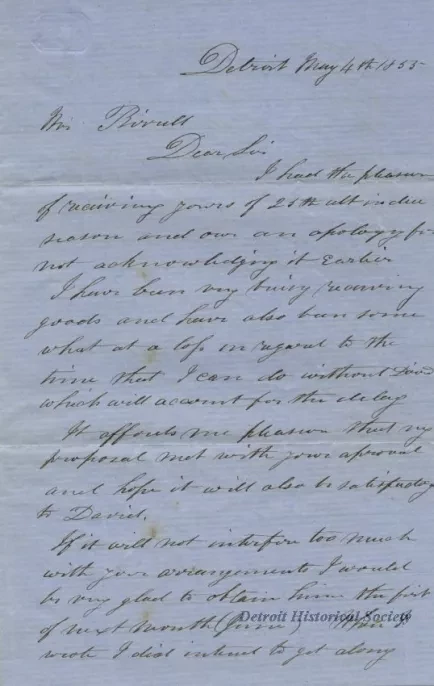 Detroit May 4th 1855
Mr Birrell
Dear Sir
I had the pleasure
of receiving yours of 25th ult in due
season and owe an apology for
not acknowledging it Earlier
I have been very buisy receiving
goods and have also been some
what at a loss in regard to the
time that I can do without David
which will account for the delay
It affords me pleasure that my
proposal met with your aproval
and hope it will also be satisfactory
to David.
If it will not interfere too much
with your arrangements I would
be very glad to obtain him the first
of next month (June) When I
Detroit Historical Society
wrote I did intend to get along